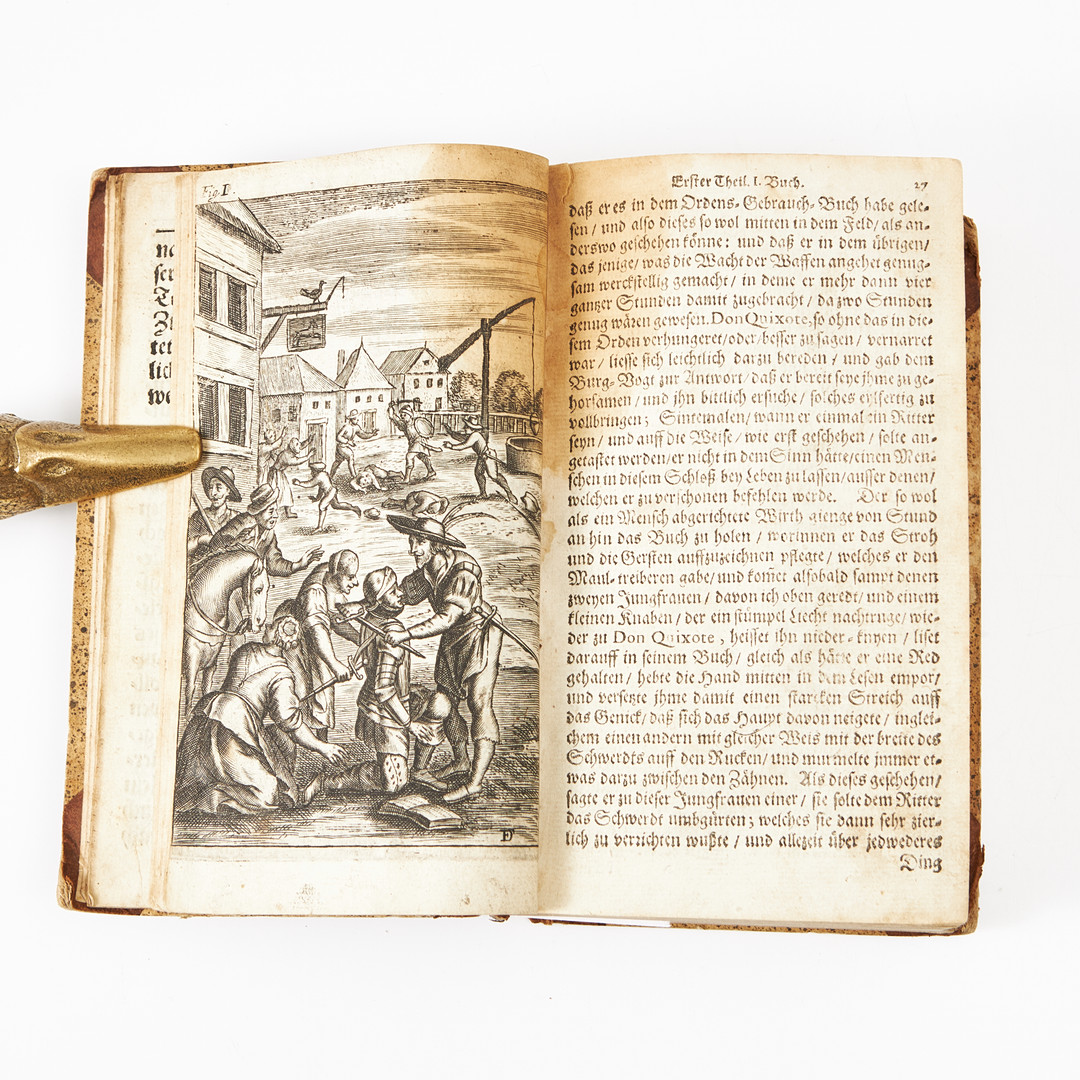 Fig I.
D
Erster Theil. I. Buch. 27
daß er es in dem Ordens-Gebrauch-Buch habe gele-
sen / und also dieses so wol mitten in dem Feld / als an-
derswo geschehen könne: und daß er in dem übrigen /
das jenige / was die Wacht der Waffen angehet genug-
sam werckstellig gemacht / in deme er mehr dann vier
gantzer Stunden damit zugebracht / da zwo Stunden
genug wären gewesen. Don Quixote, so ohne das in die-
sem Orden verhungeret / oder / besser zu sagen / vernarret
war / liesse sich leichtlich darzu bereden / und gab dem
Burg-Vogt zur Antwort / daß er bereit seye jhme zu ge-
horsamen / und ihn bittlich ersuche / solches eylfertig zu
vollbringen; Sintemalen / wann er einmal ein Ritter
seyn / und auff die Weise / wie erst geschehen / solte an-
getastet werden / er nicht in dem Sinn hätte / einen Men-
schen in diesem Schloß bey Leben zu lassen / ausser denen /
welchen er zu verschonen befehlen werde. Der so wol
als ein Mensch abgerichtete Wirth gienge von Stund
an hin das Buch zu holen / worinnen er das Stroh
und die Gersten auffzuzeichnen pflegte / welches er den
Maul-treiberen gabe / und kom̃et alsobald sampt denen
zweyen Jungfrauen / davon ich oben geredt / und einem
kleinen Knaben / der ein stümpel Liecht nachtruge / wie-
der zu Don Quixote, heisset ihn nieder-knyen / liset
darauff in seinem Buch / gleich als hätte er eine Red
gehalten / hebte die Hand mitten in dem Lesen empor /
und versetzte jhme damit einen starcken Streich auff
das Genick / daß sich das Haupt davon neigete / inglei-
chem einen andern mit gleicher Weis mit der breite des
Schwerdts auff den Rucken / und murmelte jmmer et-
was darzu zwischen den Zähnen. Als dieses geschehen /
sagte er zu dieser Jungfrauen einer / sie solte dem Ritter
das Schwerdt umbgürten; welches sie dann sehr zier-
lich zu verrichten wußte / und allezeit über jedwederes
Ding